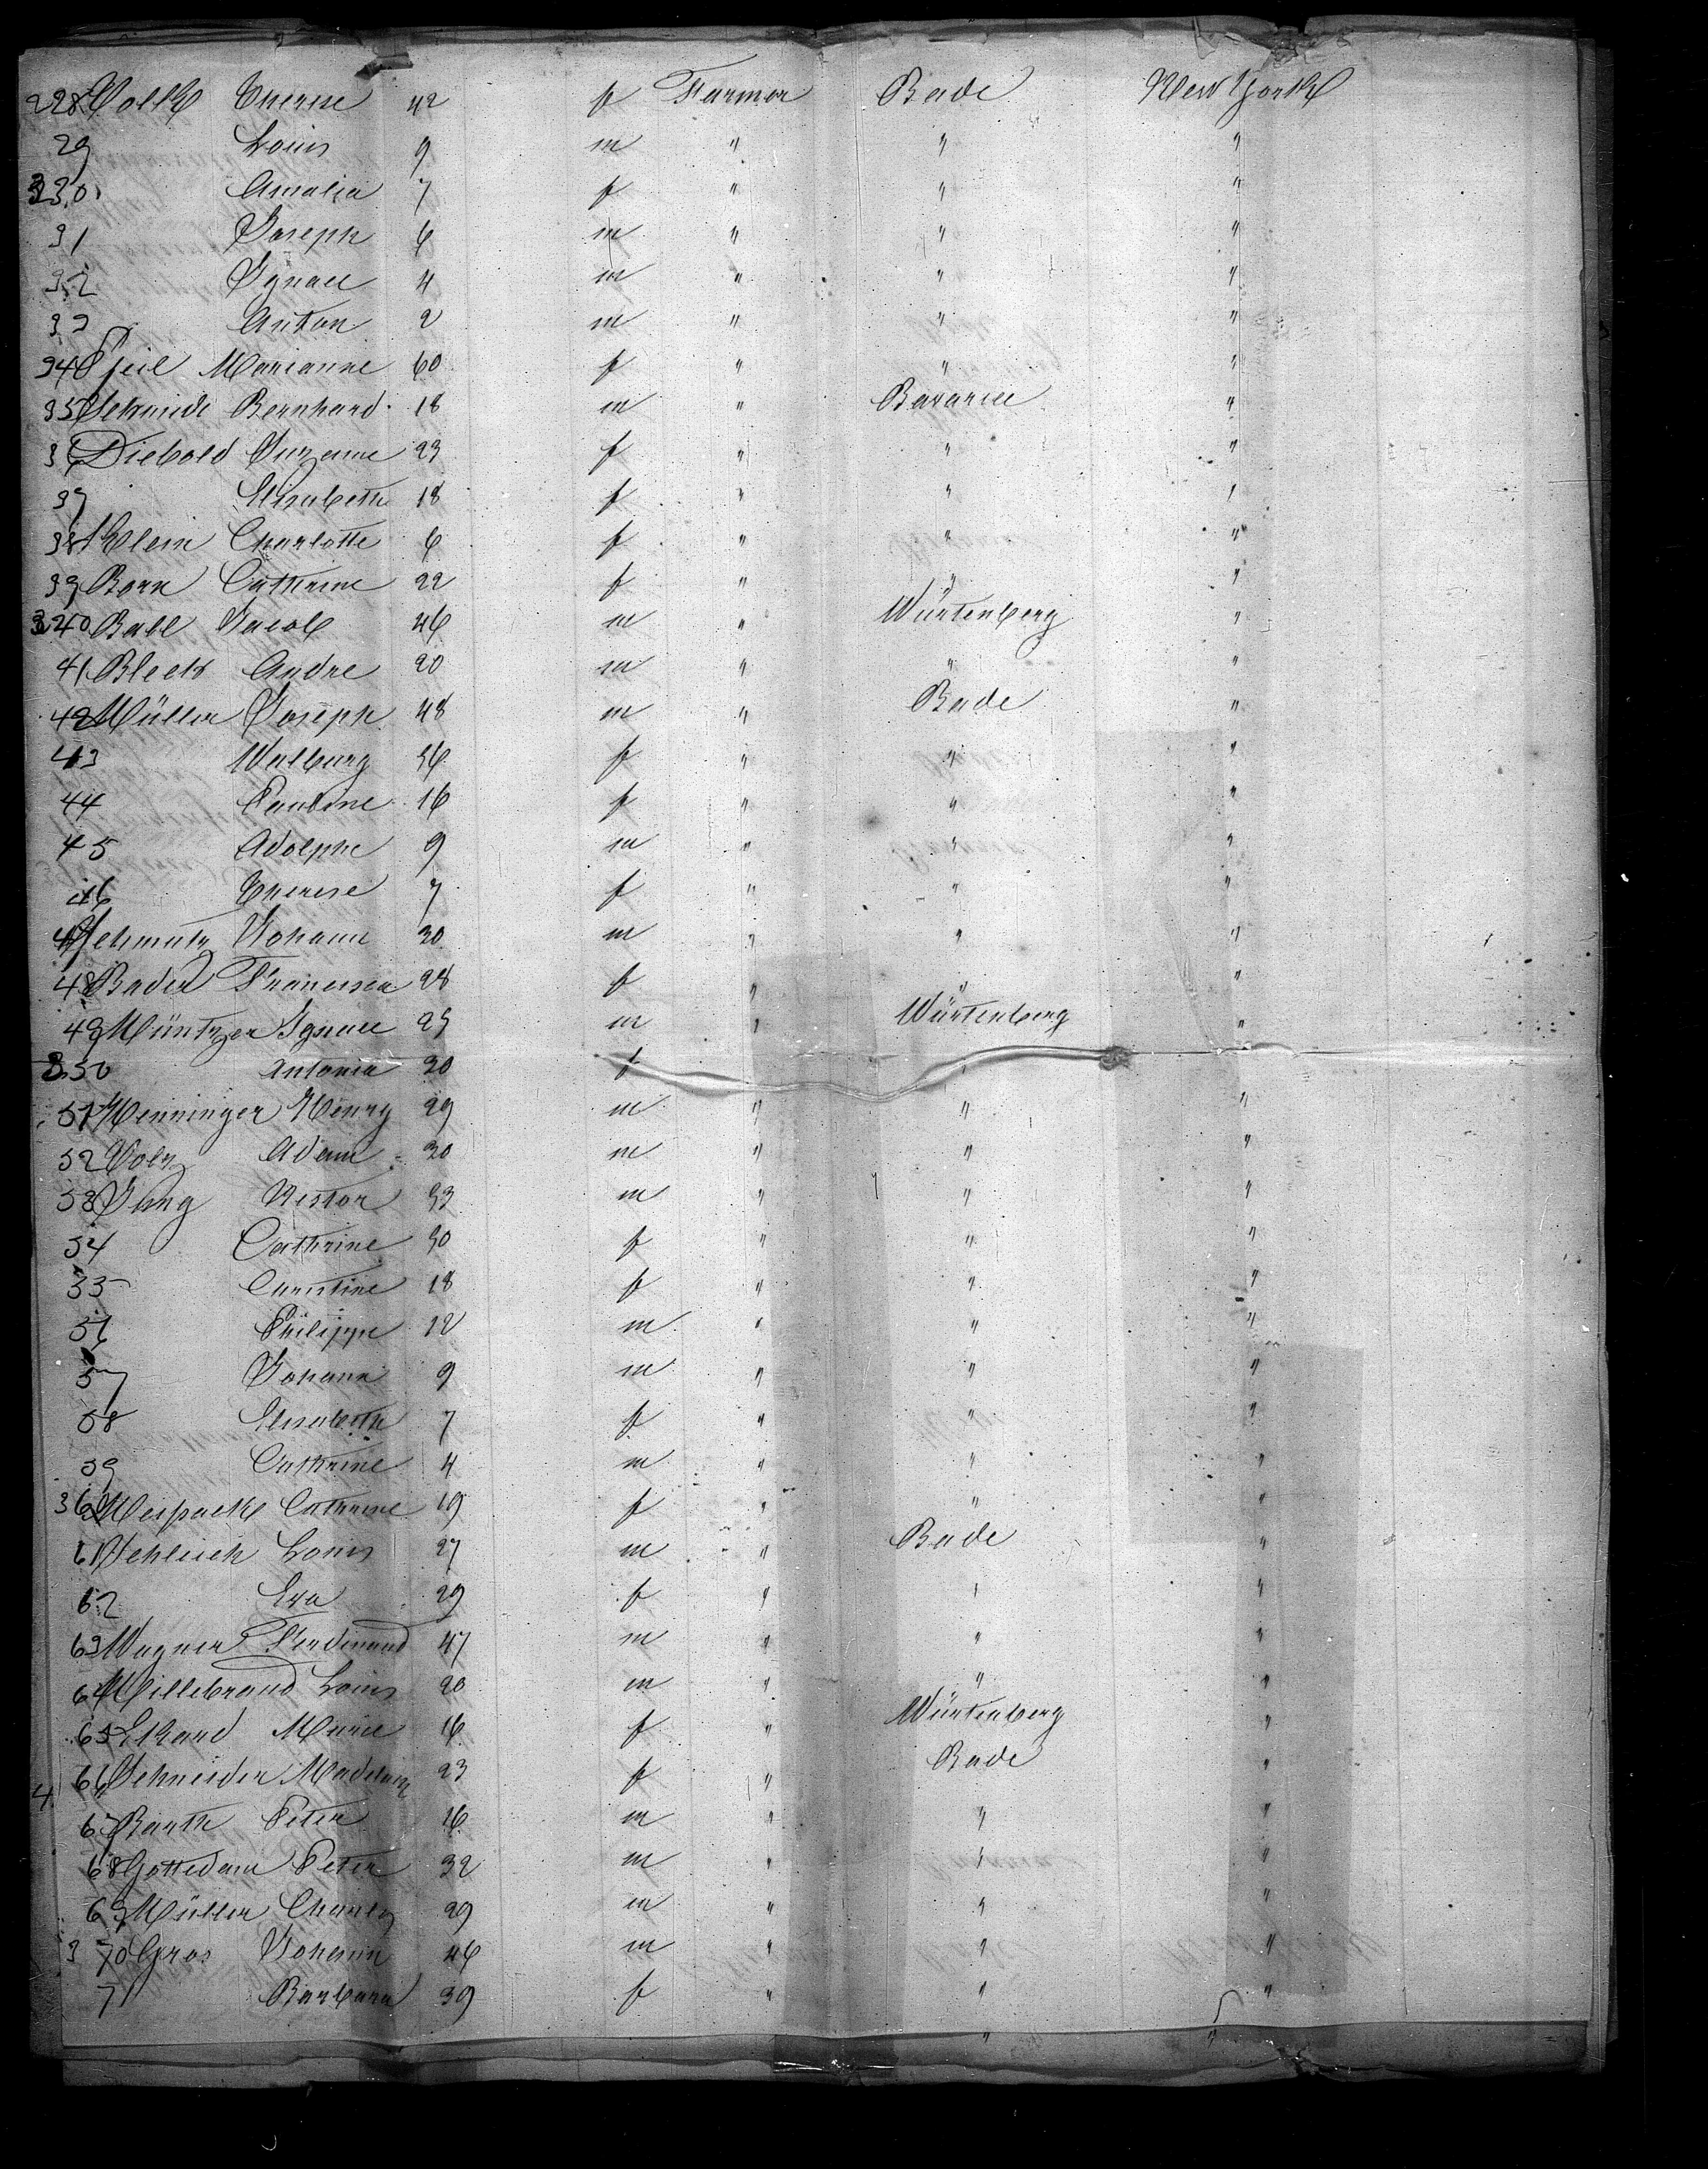 228 Volk Therese 42 f Farmer Bade New York
29 Louis 9 m " " "
330 Amalia 7 f " " "
31 Joseph 6 m " " "
32 Ignace 4 m " " "
33 Anton 2 m " " "
34 Pfeil Marianne 60 f " " "
35 Schmidt Bernhard 18 m " Bavaria "
36 Diebold Suzanne 23 f " " "
37 Elisabeth 18 f " " "
38 Klein Charlotte 6 f " " "
39 Born Cathrine 22 f " " "
340 Ball Jacob 46 m " Würtenberg "
41 Andre 20 m " " "
42 Müller Joseph 48 m " Bade "
43 Walburg 36 f " " "
44 Pauline 16 f " " "
45 Adolphe 9 m " " "
46 Therese 7 f " " "
47 Schmutz Johann 30 m " " "
48 Bader Francisca 28 f " " "
49 Müntzer Ignace 25 m " Würtenberg "
350 Antonia 30 f "
51 Henninger Henry 29 m " " "
52 Volz Adam 30 m " " "
53 Jung Nestor 33 m " " "
54 Cathrine 30 f " " "
55 Christine 18 f " " "
56 Philippe 12 m " " "
57 Johann 9 m " " "
58 Elisabeth 7 f " " "
59 Cathrine 4 m " " "
360 Cathrine 19 f " " "
61 Schleich Louis 27 m " Bade "
62 Eva 29 f " " "
63 Wagner Ferdinand 47 m " " "
64 Hillebrand Louis 20 m " " "
65 Ekhard Marie 16 f " Würtenberg "
66 Schneider Madelaine 23 f " Bade "
67 Barth Peter 16 m " " "
68 Peter 32 m " " "
69 Müller Charles 29 m " " "
370 Gros Johann 46 m " " "
71 Barbara 39 f " " "
" "